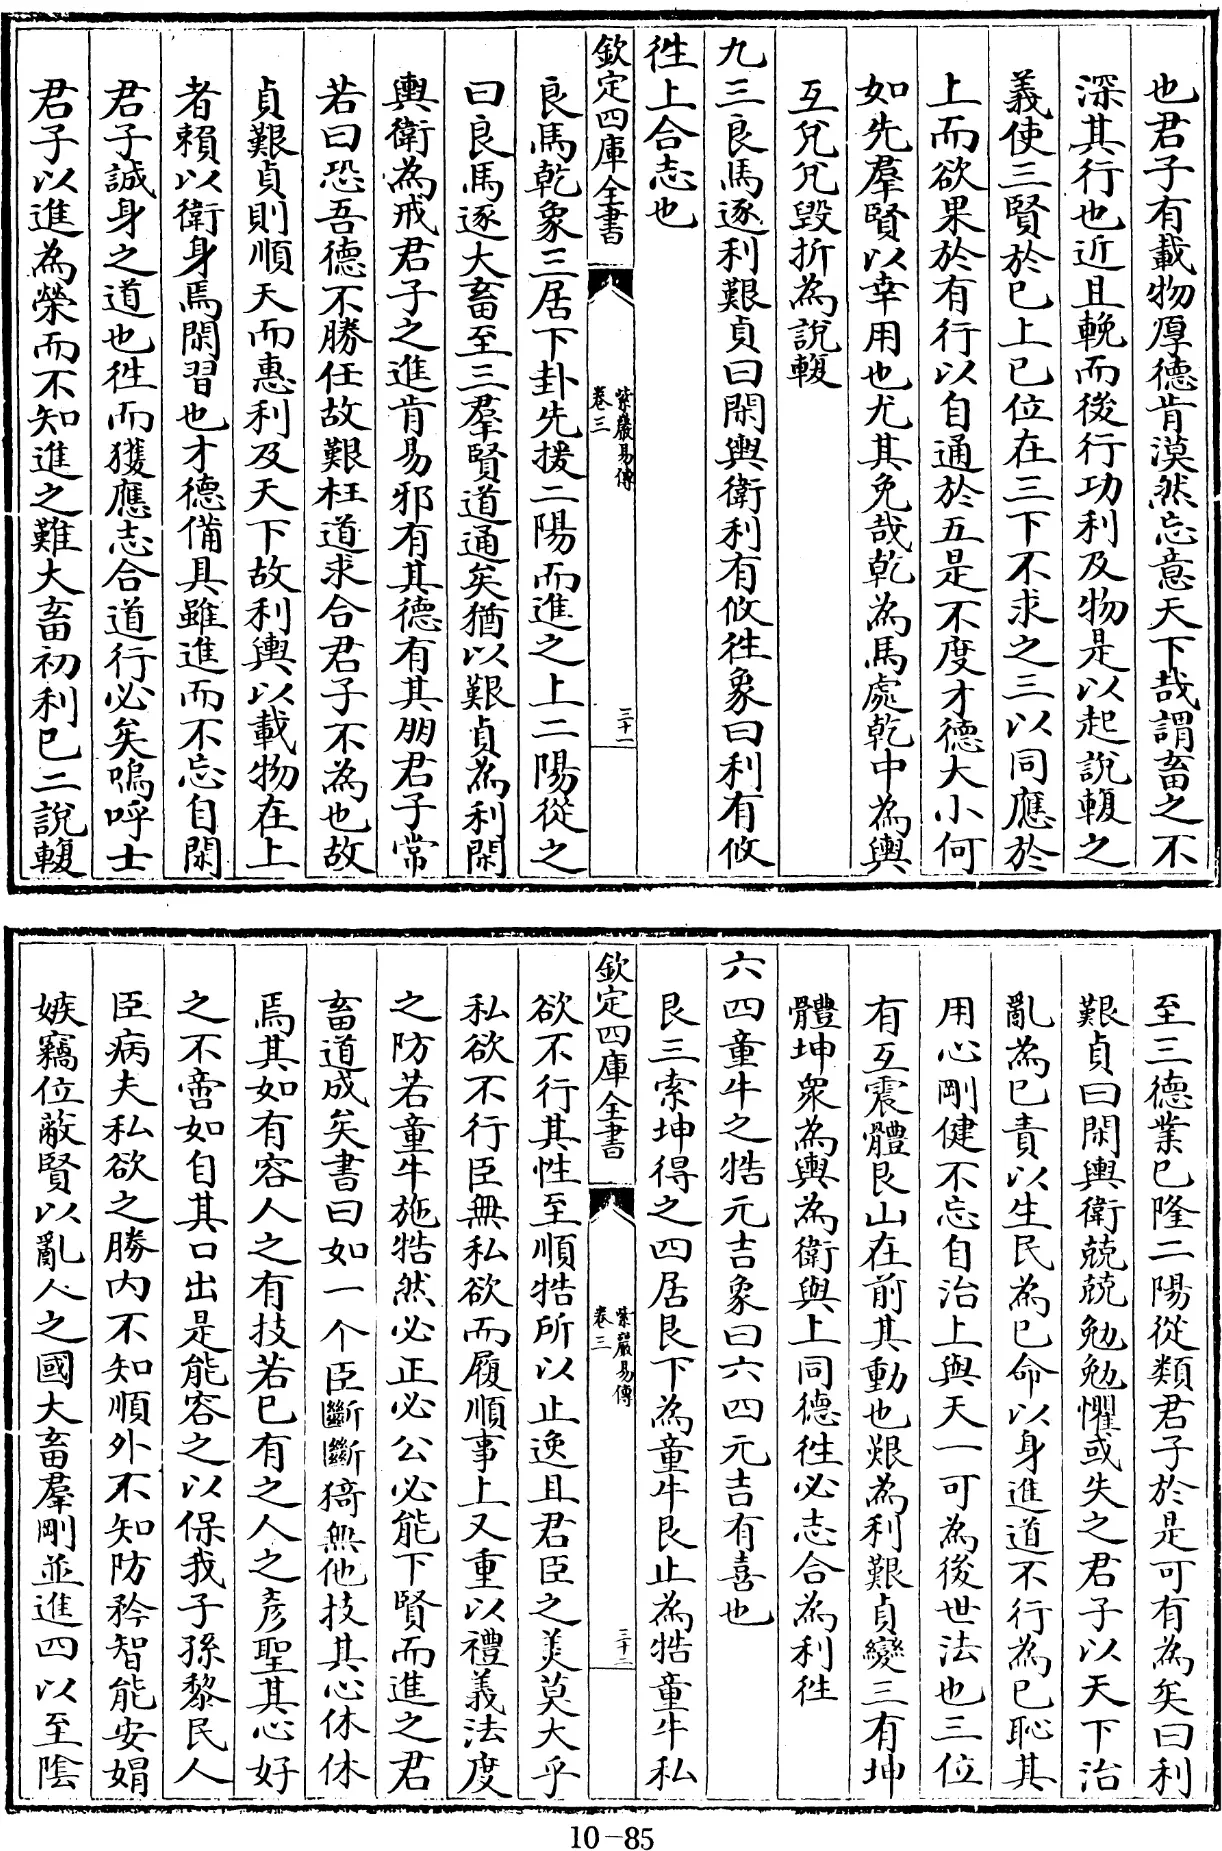 也君子有載物厚德肯漠然忘意天下哉謂畜之不
深其行也近且輓而後行功利及物是以起說輹之
義使三賢於已上已位在三下不求之三以同應於
上而欲果於有行以自通於五是不度才德大小何
如先羣賢以幸用也尤其免哉乾為馬處乾中為輿
互兌兌毀折為說輹
九三良馬逐利艱貞曰閑輿衛利有攸徃象曰利有攸
徃上合志也
欽定四庫全書
紫巖易傳
卷三
三十一
良馬乾象三居下卦先援二陽而進之上二陽從之
曰良馬逐大畜至三羣賢道通矣猶以艱貞為利閑
輿衛為戒君子之進肯易邪有其德有其朋君子常
若曰恐吾德不勝任故艱枉道求合君子不為也故
貞艱貞則順天而惠利及天下故利輿以載物在上
者賴以衛身焉閑習也才德備具雖進而不忘自閑
君子誠身之道也徃而獲應志合道行必矣嗚呼士
君子以進為榮而不知進之難大畜初利已二說輹
至三德業已隆二陽從類君子於是可有為矣曰利
艱貞曰閑輿衛兢兢勉勉懼或失之君子以天下治
亂為已責以生民為已命以身進道不行為已恥其
用心剛健不忘自治上與天一可為後世法也三位
有互震體艮山在前其動也艱為利艱貞變三有坤
體坤衆為輿為衛與上同德徃必志合為利徃
六四童牛之牿元吉象曰六四元吉有喜也
艮三索坤得之四居艮下為童牛艮止為牿童牛私
欽定四庫全書
紫巖易傳
卷三
三十二
欲不行其性至順牿所以止逸且君臣之美莫大乎
私欲不行臣無私欲而履順事上又重以禮義法度
之防若童牛施牿然必正必公必能下賢而進之君
畜道成矣書曰如一个臣斷斷猗無他技其心休休
焉其如有容人之有技若已有之人之彥聖其心好
之不啻如自其口出是能容之以保我子孫黎民人
臣病夫私欲之勝内不知順外不知防矜智能安娟
嫉竊位蔽賢以亂人之國大畜羣剛並進四以至陰
10-85